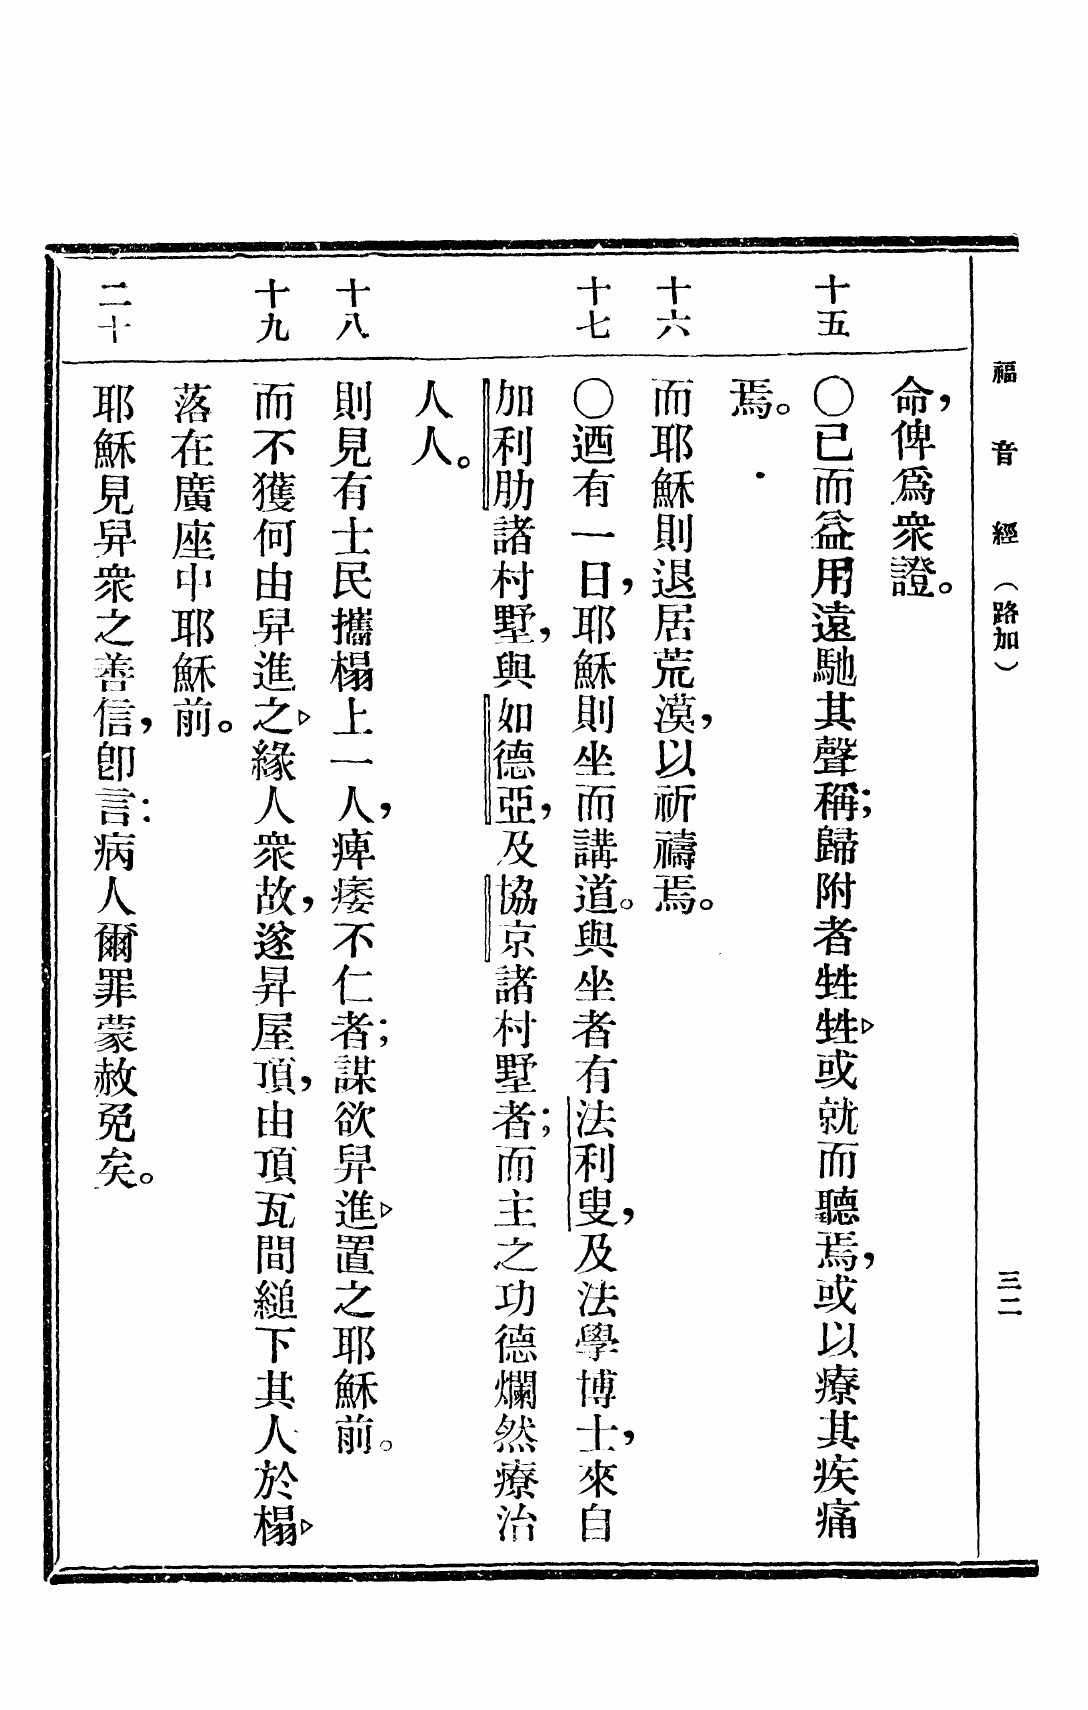 福音經（路加） 三二
命，俾爲衆證。
十五 〇已而益用遠馳其聲稱；歸附者甡甡▷或就而聽焉，或以療其疾痛
焉。
十六 而耶穌則退居荒漠，以祈禱焉。
十七 〇迺有一日，耶穌則坐而講道。與坐者有法利叟，及法學博士，來自
加利肋諸村墅，與如德亞，及協京諸村墅者；而主之功德爛然療治
人人。
十八 則見有士民攜榻上一人，痺痿不仁者；謀欲舁進▷置之耶穌前。
十九 而不獲何由舁進之▷緣人衆故，遂昇屋頂，由頂瓦間縋下其人於榻▷
落在廣座中耶穌前。
二十 耶穌見舁衆之善信，卽言：病人爾罪蒙赦免矣。